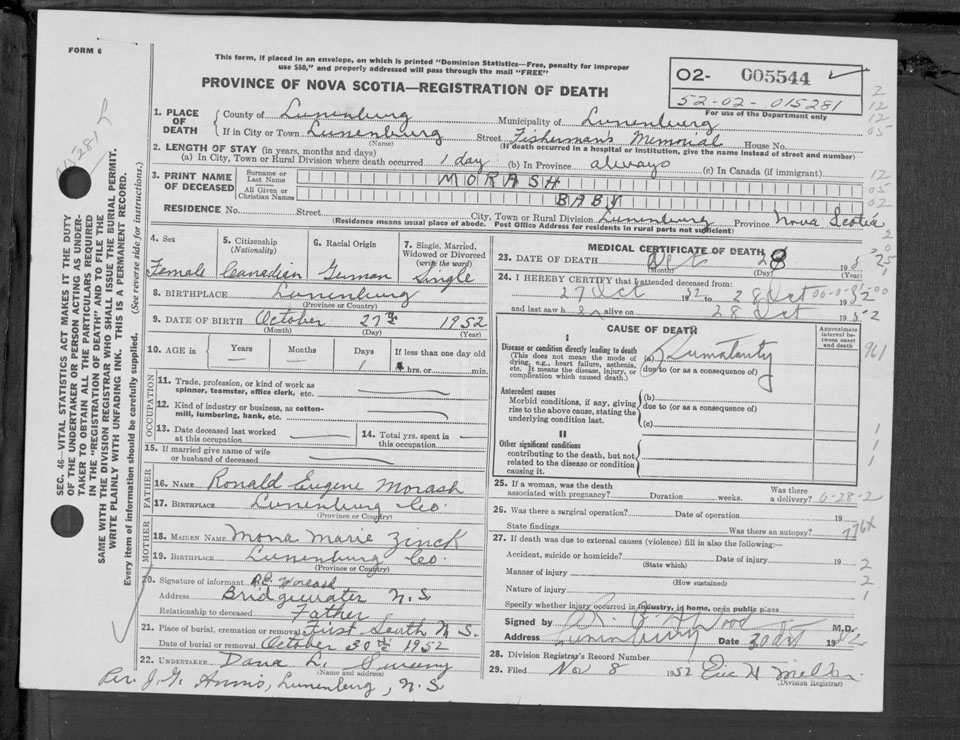 FORM 6
This form, if placed in an envelope, on which is printed "Dominion Statistics—Free, penalty for improper
use $50," and properly addressed will pass through the mail "FREE"
PROVINCE OF NOVA SCOTIA—REGISTRATION OF DEATH
O2- 005544
52-02-015281
For use of the Department only
1. PLACE OF DEATH
County of Lunenburg Municipality of Lunenburg
If in City or Town Lunenburg Street Fisherman's Memorial House No.
(Name) (If death occurred in a hospital or institution, give the name instead of street and number)
2. LENGTH OF STAY (in years, months and days)
(a) In City, Town or Rural Division where death occurred 1 day (b) In Province always (c) In Canada (if immigrant)
3. PRINT NAME OF DECEASED
Surname or Last Name MORASH
All Given or Christian Names BABY
RESIDENCE No. Street City, Town or Rural Division Lunenburg Province Nova Scotia
(Residence means usual place of abode. Post Office Address for residents in rural parts not sufficient)
4. Sex 5. Citizenship (Nationality) 6. Racial Origin 7. Single, Married, Widowed or Divorced (write the word)
Female Canadian German Single
8. BIRTHPLACE Lunenburg
(Province or Country)
9. DATE OF BIRTH October 27th 1952
(Month) (Day) (Year)
10. AGE in Years Months Days If less than one day old
hrs. or min.
OCCUPATION
11. Trade, profession, or kind of work as
spinner, teamster, office clerk, etc.
12. Kind of industry or business, as cotton-
mill, lumbering, bank, etc.
13. Date deceased last worked
at this occupation
14. Total yrs. spent in
this occupation
15. If married give name of wife
or husband of deceased
FATHER
16. NAME Ronald Eugene Morash
17. BIRTHPLACE Lunenburg Co.
(Province or Country)
MOTHER
18. MAIDEN NAME Mona Marie Zinck
19. BIRTHPLACE Lunenburg Co.
(Province or Country)
20. Signature of informant R.E. Morash
Address Bridgewater N.S.
Relationship to deceased Father
21. Place of burial, cremation or removal First South N.S.
Date of burial or removal October 30th 1952
22. UNDERTAKER Dana L. Sweeny
(Name and address)
Per. J. G. Annis, Lunenburg, N.S
MEDICAL CERTIFICATE OF DEATH
23. DATE OF DEATH Oct 28 195
(Month) (Day) (Year)
24. I HEREBY CERTIFY that I attended deceased from:
27 Oct 1952 to 28 Oct 1952
and last saw her alive on 28 Oct 1952
CAUSE OF DEATH
Approximate interval between onset and death
I
Disease or condition directly leading to death
(This does not mean the mode of
dying, e.g., heart failure, asthenia,
etc. It means the disease, injury, or
complication which caused death.)
(a) Prematurity
due to (or as a consequence of)
961
Antecedent causes
Morbid conditions, if any, giving
rise to the above cause, stating the
underlying condition last.
(b)
due to (or as a consequence of)
(c)
II
Other significant conditions
contributing to the death, but not
related to the disease or condition
causing it.
25. If a woman, was the death
associated with pregnancy? Duration weeks. Was there
a delivery? 0-28-2
26. Was there a surgical operation? Date of operation 19
State findings Was there an autopsy? 776X
27. If death was due to external causes (violence) fill in also the following:—
Accident, suicide or homicide? Date of injury 19
(State which)
Manner of injury
(How sustained)
Nature of injury
Specify whether injury occurred in industry, in home, or in public place
Signed by M.D.
Address Lunenburg Date 30 Oct 1952
28. Division Registrar's Record Number
29. Filed Nov 8 1952
(Division Registrar)
SEC. 46—VITAL STATISTICS ACT MAKES IT THE DUTY
OF THE UNDERTAKER OR PERSON ACTING AS UNDER-
TAKER TO OBTAIN ALL THE PARTICULARS REQUIRED
IN THE "REGISTRATION OF DEATH" AND TO FILE THE
SAME WITH THE DIVISION REGISTRAR WHO SHALL ISSUE THE BURIAL PERMIT.
WRITE PLAINLY WITH UNFADING INK. THIS IS A PERMANENT RECORD.
Every item of information should be carefully supplied. (See reverse side for instructions.)